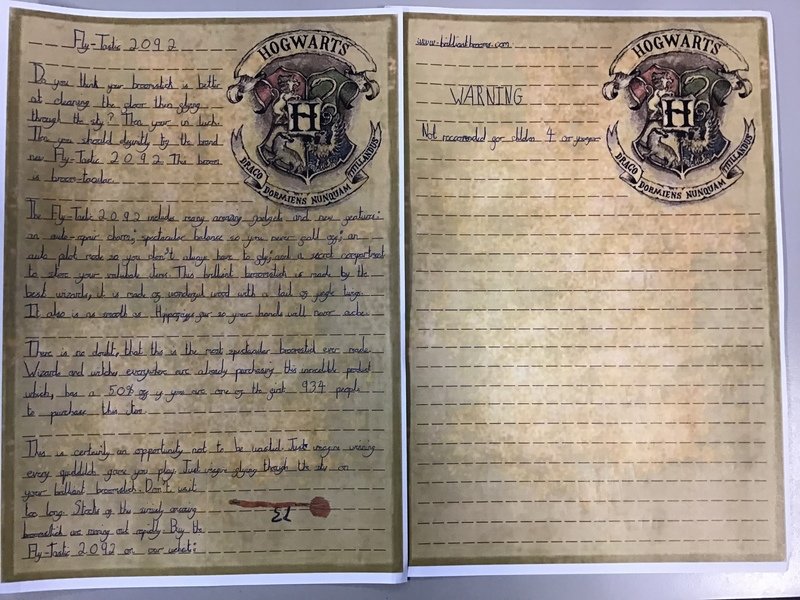 Fly-Tastic 2092
HOGWARTS
Do you think your broomstick is better
at cleaning the floor than flying
through the sky? Then your in luck.
Then you should definitly try the brand
new Fly-Tastic 2092. This broom
is broom-tacular.
DRACO DORMIENS NUNQUAM TITILLANDUS
The Fly-Tastic 2092 includes many amazing gadgets and new features:
an auto-repair charm; spectacular balance so you never fall off; an
auto pilot mode so you don't always have to fly; and a secret compartment
to store your valuable items. This brilliant broomstick is made by the
best wizards, it is made of wonderful wood with a tail of jungle twigs.
It also is as smooth as Hippogriffs fur so your hands will never ache.
There is no doubt, that this is the most spectacular broomstick ever made.
Wizards and witches everywhere are already purchasing this incredible product
which, has a 50% off if you are one of the first 934 people
to purchase this item.
This is certainly an opportunity not to be wasted. Just imagine winning
every quidditch game you play. Just imagine flying through the air on
your brilliant broomstick. Don't wait
too long. Stocks of this amazing
broomstick are running out rapidly. Buy the
Fly-Tastic 2092 on our website:
www.brilliantbrooms.com
HOGWARTS
WARNING
Not recommended for children 4 or younger
DRACO DORMIENS NUNQUAM TITILLANDUS